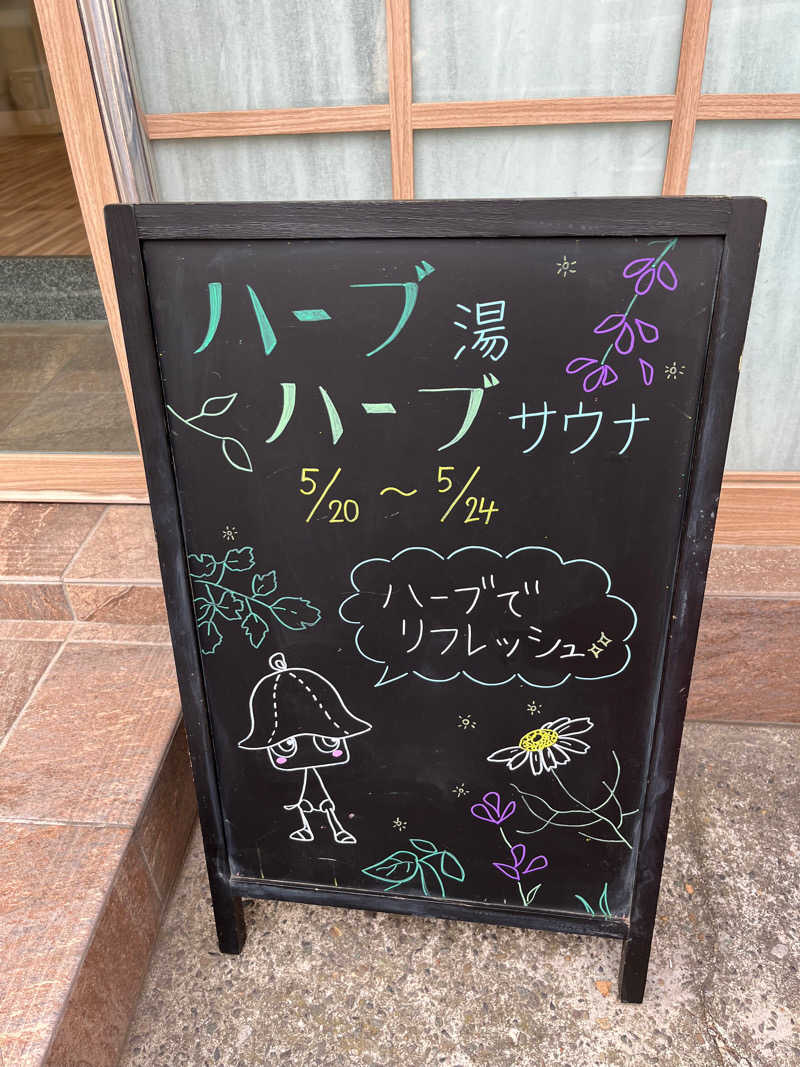 ハーブ湯
ハーブサウナ
5/20 〜 5/24
ハーブで
リフレッシュ